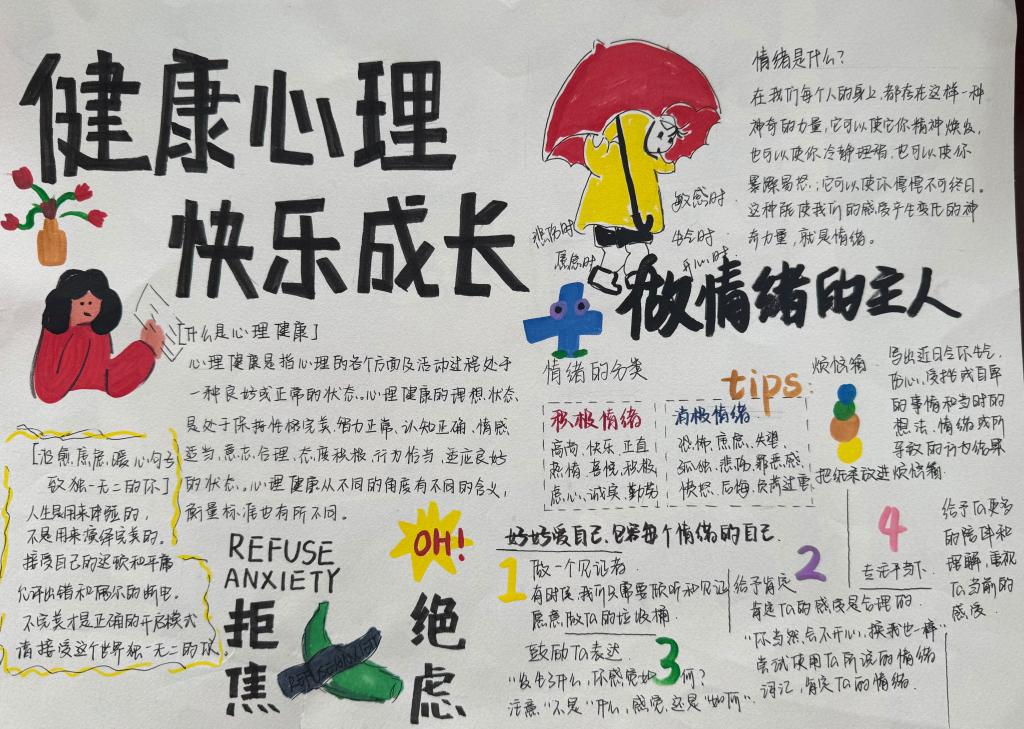 健康心理
快乐成长
情绪是什么?
在我们每个人的身上,都存在这样一种
神奇的力量,它可以使它你精神焕发,
也可以使你冷静理智,也可以使你
暴躁易怒;它可以使你惶惶不可终日。
这种能使我们的感受产生变化的神
奇力量,就是情绪。
悲伤时
焦虑时
敏感时
生气时
开心时
做情绪的主人
[什么是心理健康]
心理健康是指心理的各个方面及活动过程处于
一种良好或正常的状态。心理健康的理想状态
是处于保持性格完美、智力正常、认知正确、情感
适当、意志合理、态度积极、行为恰当、适应良好
的状态。心理健康从不同的角度有不同的含义,
衡量标准也有所不同。
[治愈焦虑暖心句子
致独一无二的你]
人生是用来体验的,
不是用来演绎完美的。
接受自己的迟钝和平庸
允许出错和偶尔的断电。
不完美才是正确的开启模式
请接受这个世界独一无二的你。
REFUSE
ANXIETY
OH!
拒绝
焦虑
REFUSE ANXIETY
情绪的分类
积极情绪
高尚、快乐、正直
热情、喜悦、积极
虚心、诚实、勤劳
消极情绪
恐怖、焦虑、失望、
孤独、悲伤、罪恶感
愤怒、后悔、负荷过重
tips:
烦恼箱
写出近日令你生气、
伤心、后悔或自卑
的事情和当时的
想法、情绪或所
导致的行为结果
把纸条放进烦恼箱
好好爱自己,包容每个情绪的自己
1
做一个见证者
有时候,我们只需要倾听和见证
愿意做TA的垃圾桶
2
给予肯定
肯定TA的感受是合理的
"你当然会不开心,换我也一样"
尝试使用TA所说的情绪
词汇,肯定TA的情绪
3
鼓励TA表达
"发生了什么,你感觉如何?
注意"不是"什么,感觉,还是"如何"
4
专元于当下
给予TA更多
的陪伴和
理解,重视
TA当前的
感受